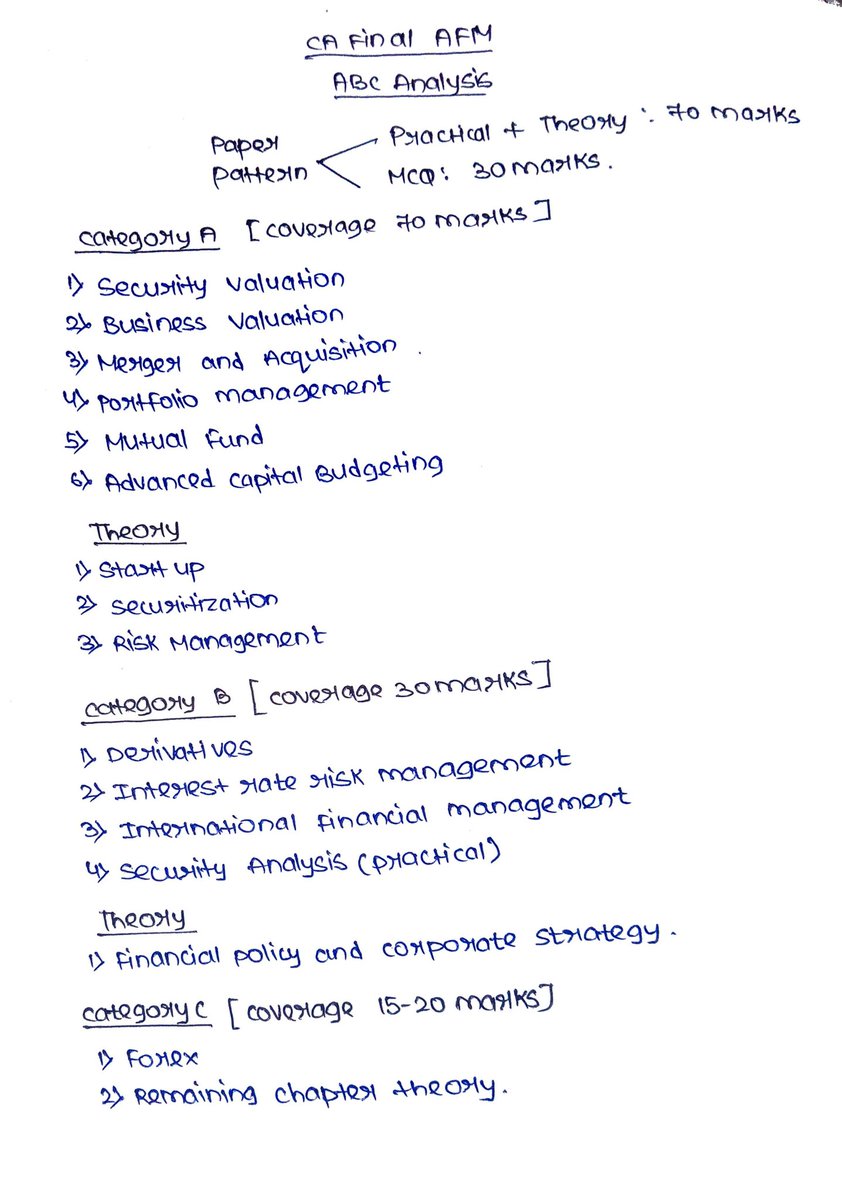 CA Final AFM
ABC Analysis
Paper Pattern
Practical + Theory : 70 marks
MCQ : 30 marks.
Category A [coverage 70 marks]
1) Security Valuation
2) Business Valuation
3) Merger and Acquisition .
4) Portfolio management
5) Mutual Fund
6) Advanced Capital Budgeting
Theory
1) Start up
2) Securitization
3) Risk Management
Category B [coverage 30 marks]
1) Derivatives
2) Interest rate risk management
3) International financial management
4) Security Analysis (practical)
Theory
1) Financial policy and corporate strategy.
Category C [coverage 15-20 marks]
1) Forex
2) Remaining chapter theory.